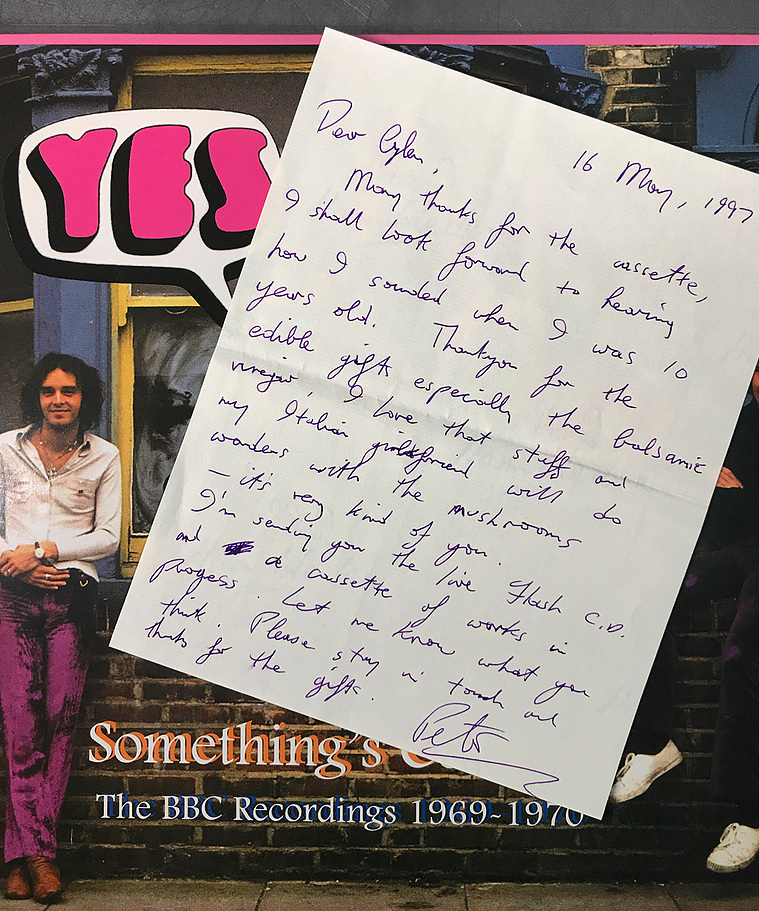 YES
16 May, 1997
Dear
Many thanks for the cassette,
I shall look forward to hearing
how I sounded when I was 10
years old. Thankyou for the
edible gifts especially the balsamic
vinegar, I love that stuff and
my Italian girlfriend will do
wonders with the mushrooms
– it's very kind of you.
I'm sending you the live Flash C.D.
and a cassette of works in
progess. Let me know what you
think. Please stay in touch and
thanks for the gifts.
Peter
Something's
The BBC Recordings 1969-1970